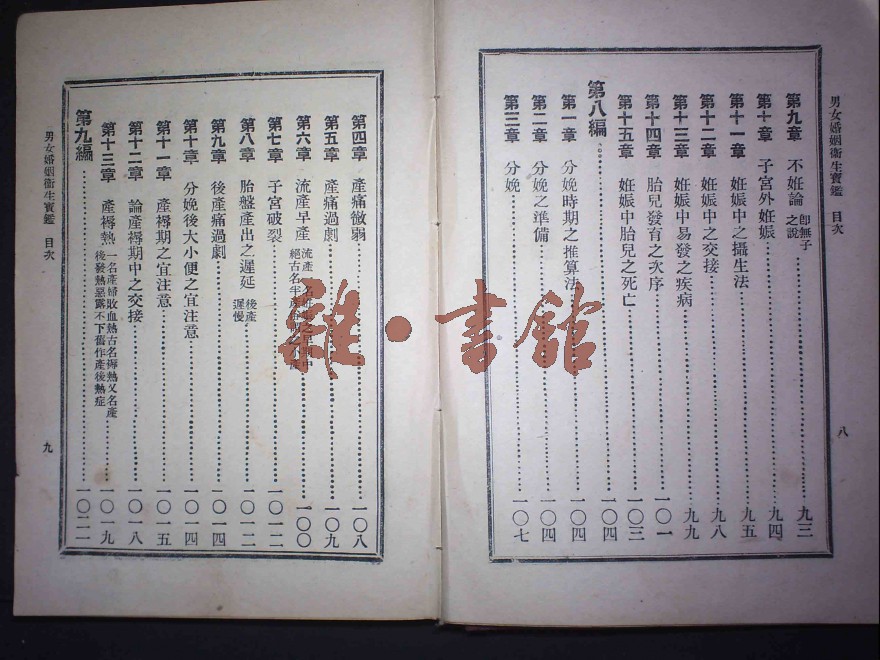 男女婚姻衛生寶鑑 目次
八
第九章 不妊論 即無子之說 九三
第十章 子宮外妊娠 九四
第十一章 妊娠中之攝生法 九五
第十二章 妊娠中之交接 九八
第十三章 妊娠中易發之疾病 九九
第十四章 胎兒發育之次序 一〇一
第十五章 妊娠中胎兒之死亡 一〇三
第八編 一〇四
第一章 分娩時期之推算法 一〇四
第二章 分娩之準備 一〇四
第三章 分娩 一〇七
第四章 產痛微弱 一〇八
第五章 產痛過劇 一〇九
第六章 流產早產 一〇〇
第七章 子宮破裂 一〇一二
第八章 胎盤產出之遲延 後產遲慢 一〇一二
第九章 後產痛過劇 一〇一四
第十章 分娩後大小便之宜注意 一〇一四
第十一章 產褥期之宜注意 一〇一五
第十二章 論產褥期中之交接 一〇一八
第十三章 產褥熱 一名產婦敗血熱古名褥熱又名產後發熱惡露不下舊作產後熱症 一〇一九
第九編 一〇二一
男女婚姻衛生寶鑑 目次
九
雜·書館